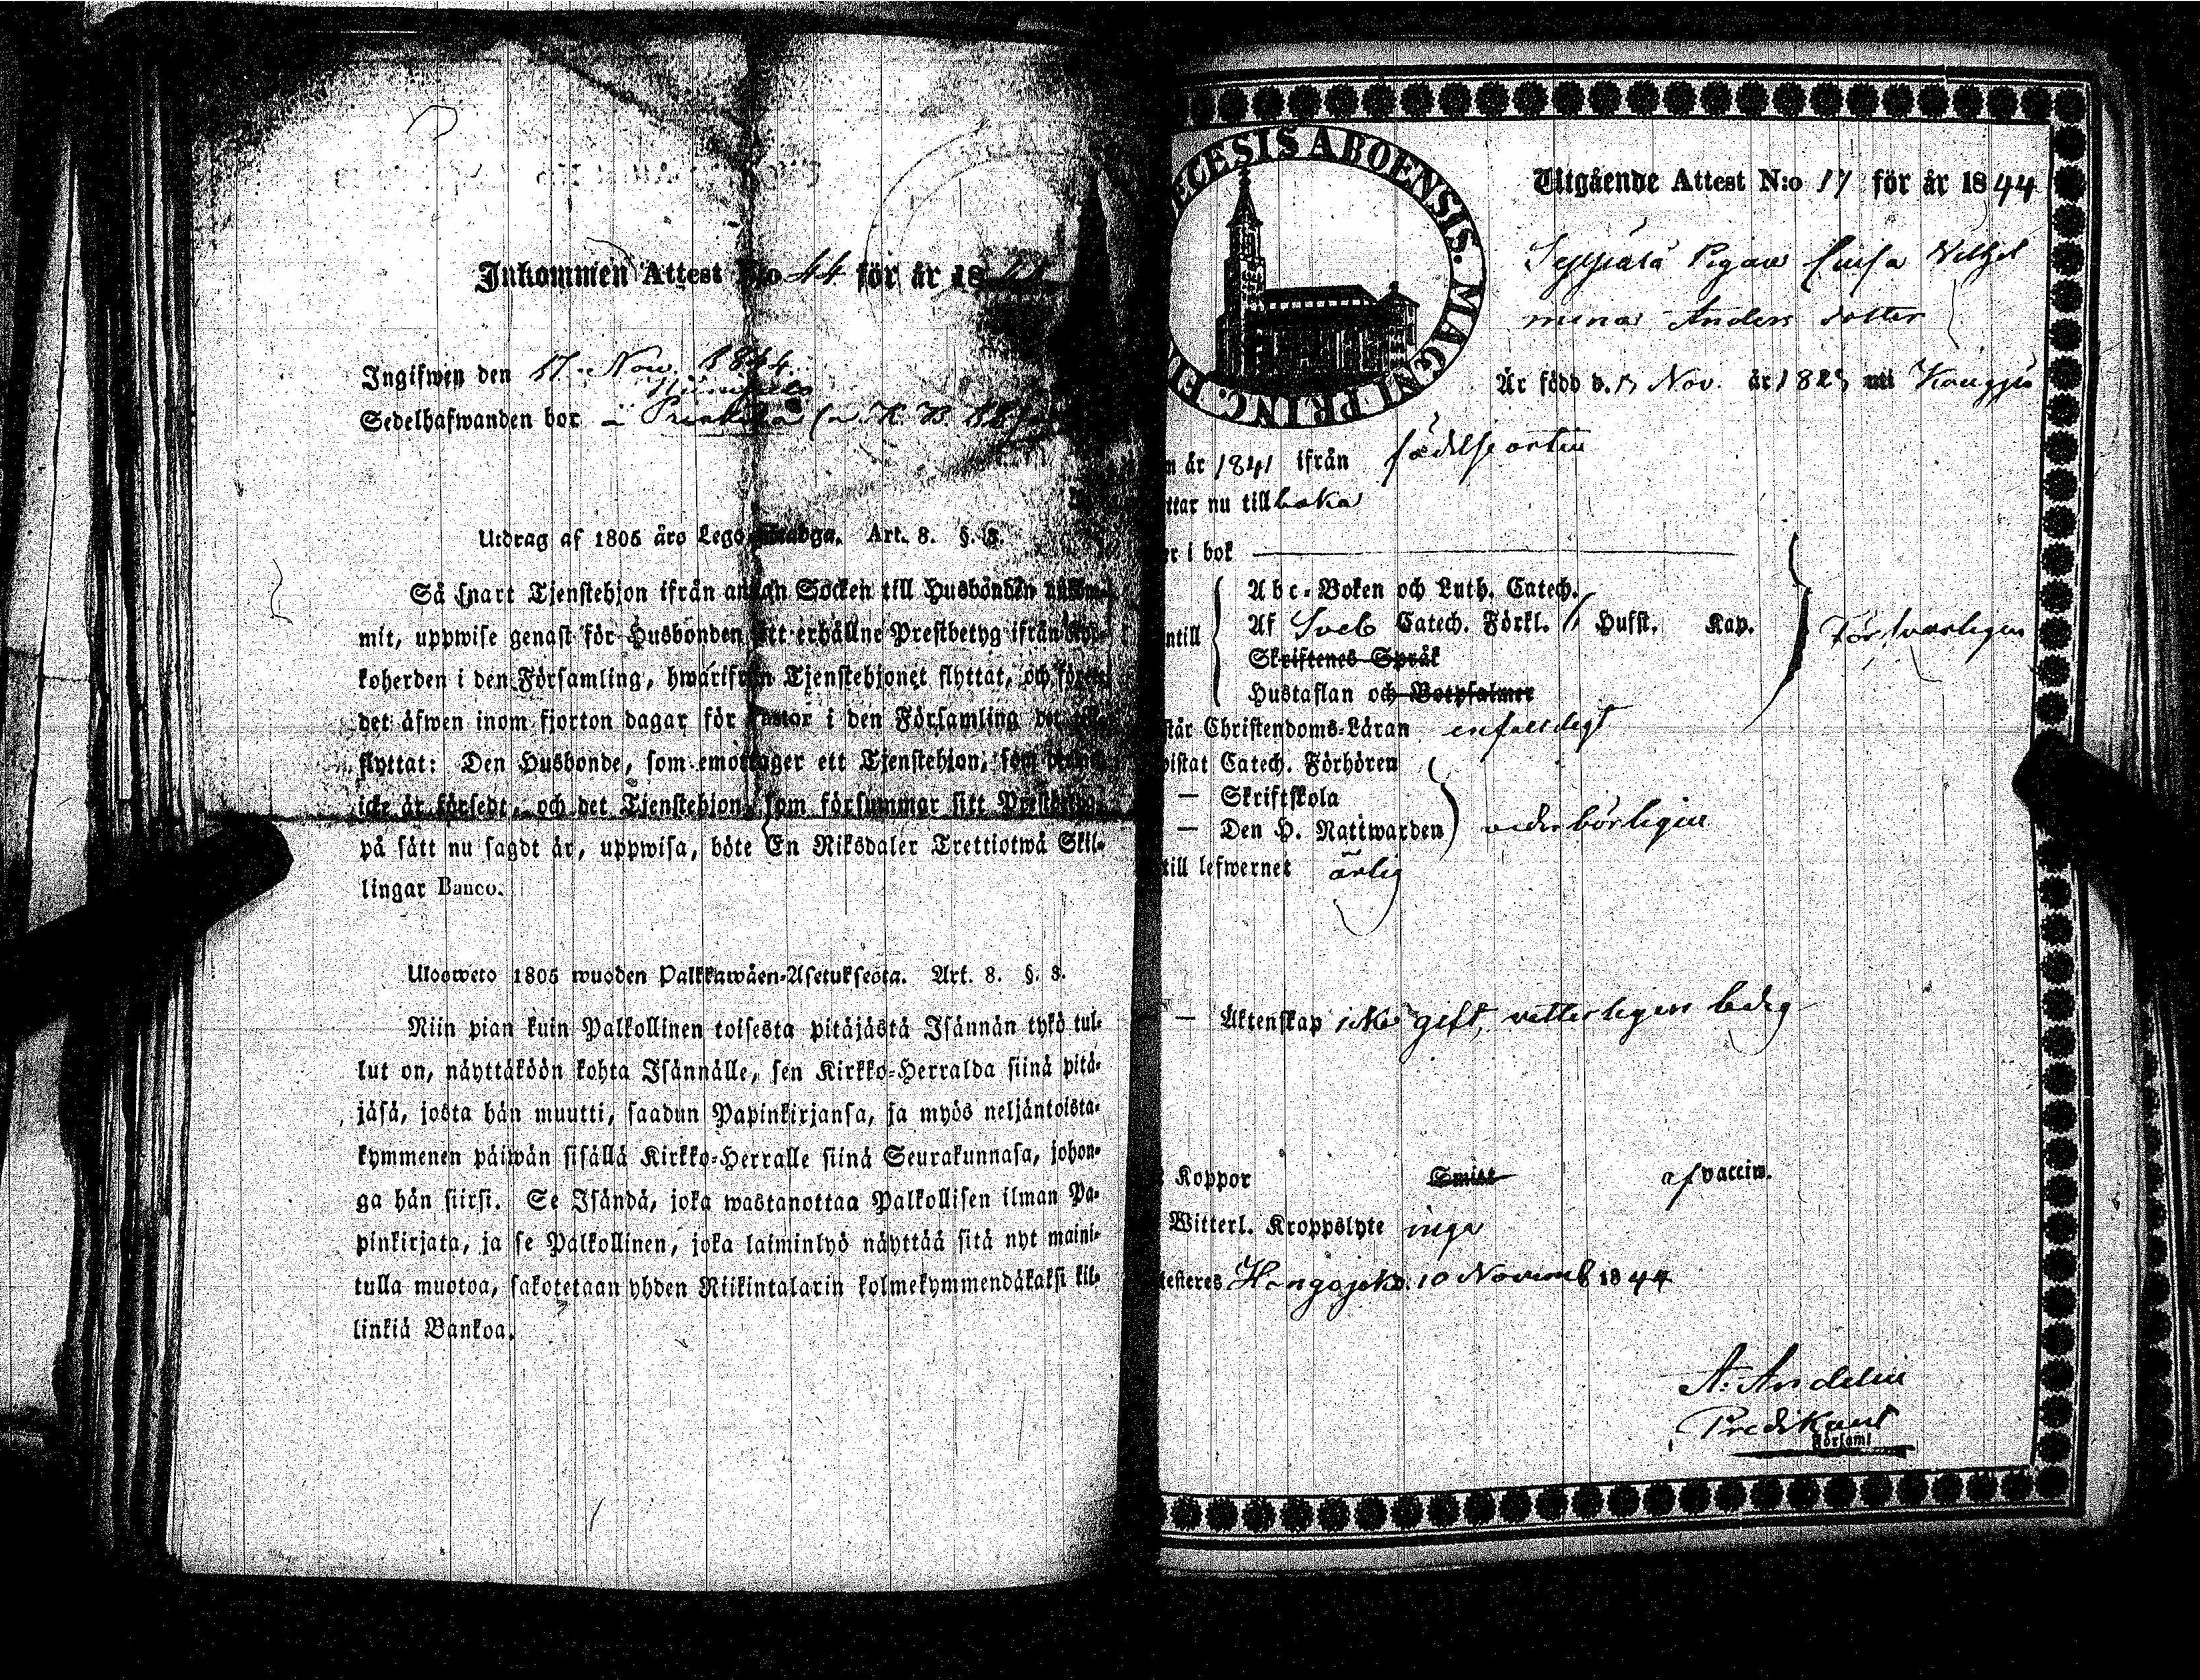 Inkommen Attest N:o 44 för år 1844
Ingifwen den 17 Nov. 1844.
Sedelhafwanden bor
Utdrag af 1805 års Lego Stadga. Art. 8. §. 3.
Så snart Tjenstehjon ifrån annan Socken till Husbonden ankom-
mit, uppwise genast för Husbonden sitt erhållne Prestbetyg ifrån Kyr-
koherden i den Församling, hwarifrån Tjenstehjonet flyttat, och förete
det äfwen inom fjorton dagar för Pastor i den Församling
flyttat: Den Husbonde, som emottager ett Tjenstehjon, som
icke är försedt, och det Tjenstehjon, som försummar sitt Prestbetyg
på sätt nu sagdt är, uppwisa, böte En Riksdaler Trettiotwå Skil-
lingar Banco.
Ulosweto 1805 wuoden Palkkawäen-Asetuksesta. Art. 8. §. 3.
Niin pian kuin Palkollinen toisesta pitäjästä Isännän tykö tul-
lut on, näyttäköön kohta Isännälle, sen Kirkko-Herralda siinä pitä-
jäsä, josta hän muutti, saadun Papinkirjansa, ja myös neljäntoista-
kymmenen päiwän sisällä Kirkko-Herralle siinä Seurakunnasa, johon-
ga hän siirsi. Se Isändä, joka wastanottaa Palkollisen ilman Pa-
pinkirjata, ja se Palkollinen, joka laiminlyö näyttää sitä nyt maini-
tulla muotoa, sakotetaan yhden Riikintalarin kolmekymmendäkaksi kil-
linkiä Bankoa.
ECESIS ABOENSIS. MAGNI PRINC. FI
Utgående Attest N:o 17 för år 1844
Seppälä Pigan Luisa Vilhel
mina Anders dotter
Är född d. 13 Nov. år 1823 uti
n år 1841 ifrån födelse orten
ttar nu tillbaka
r i bok
Abc-Boken och Luth. Catech.
ntill Af Sveb Catech. Förkl. Husst. Kap. Försvarligen
Skriftenes Språk
Hustaflan och Botpsalmer
står Christendoms-Läran enfaldigt
wistat Catech. Förhören
— Skriftskola
— Den H. Nattwarden vederbörligen
till lefwernet ärlig
— Äktenskap icke gift, vetterligen ledig
Koppor Smitt af vaccin.
Witterl. Kroppslyte inga
testeres Hongojoki d. 10 Novemb 1844
A. Andelin
Predikant
Församl